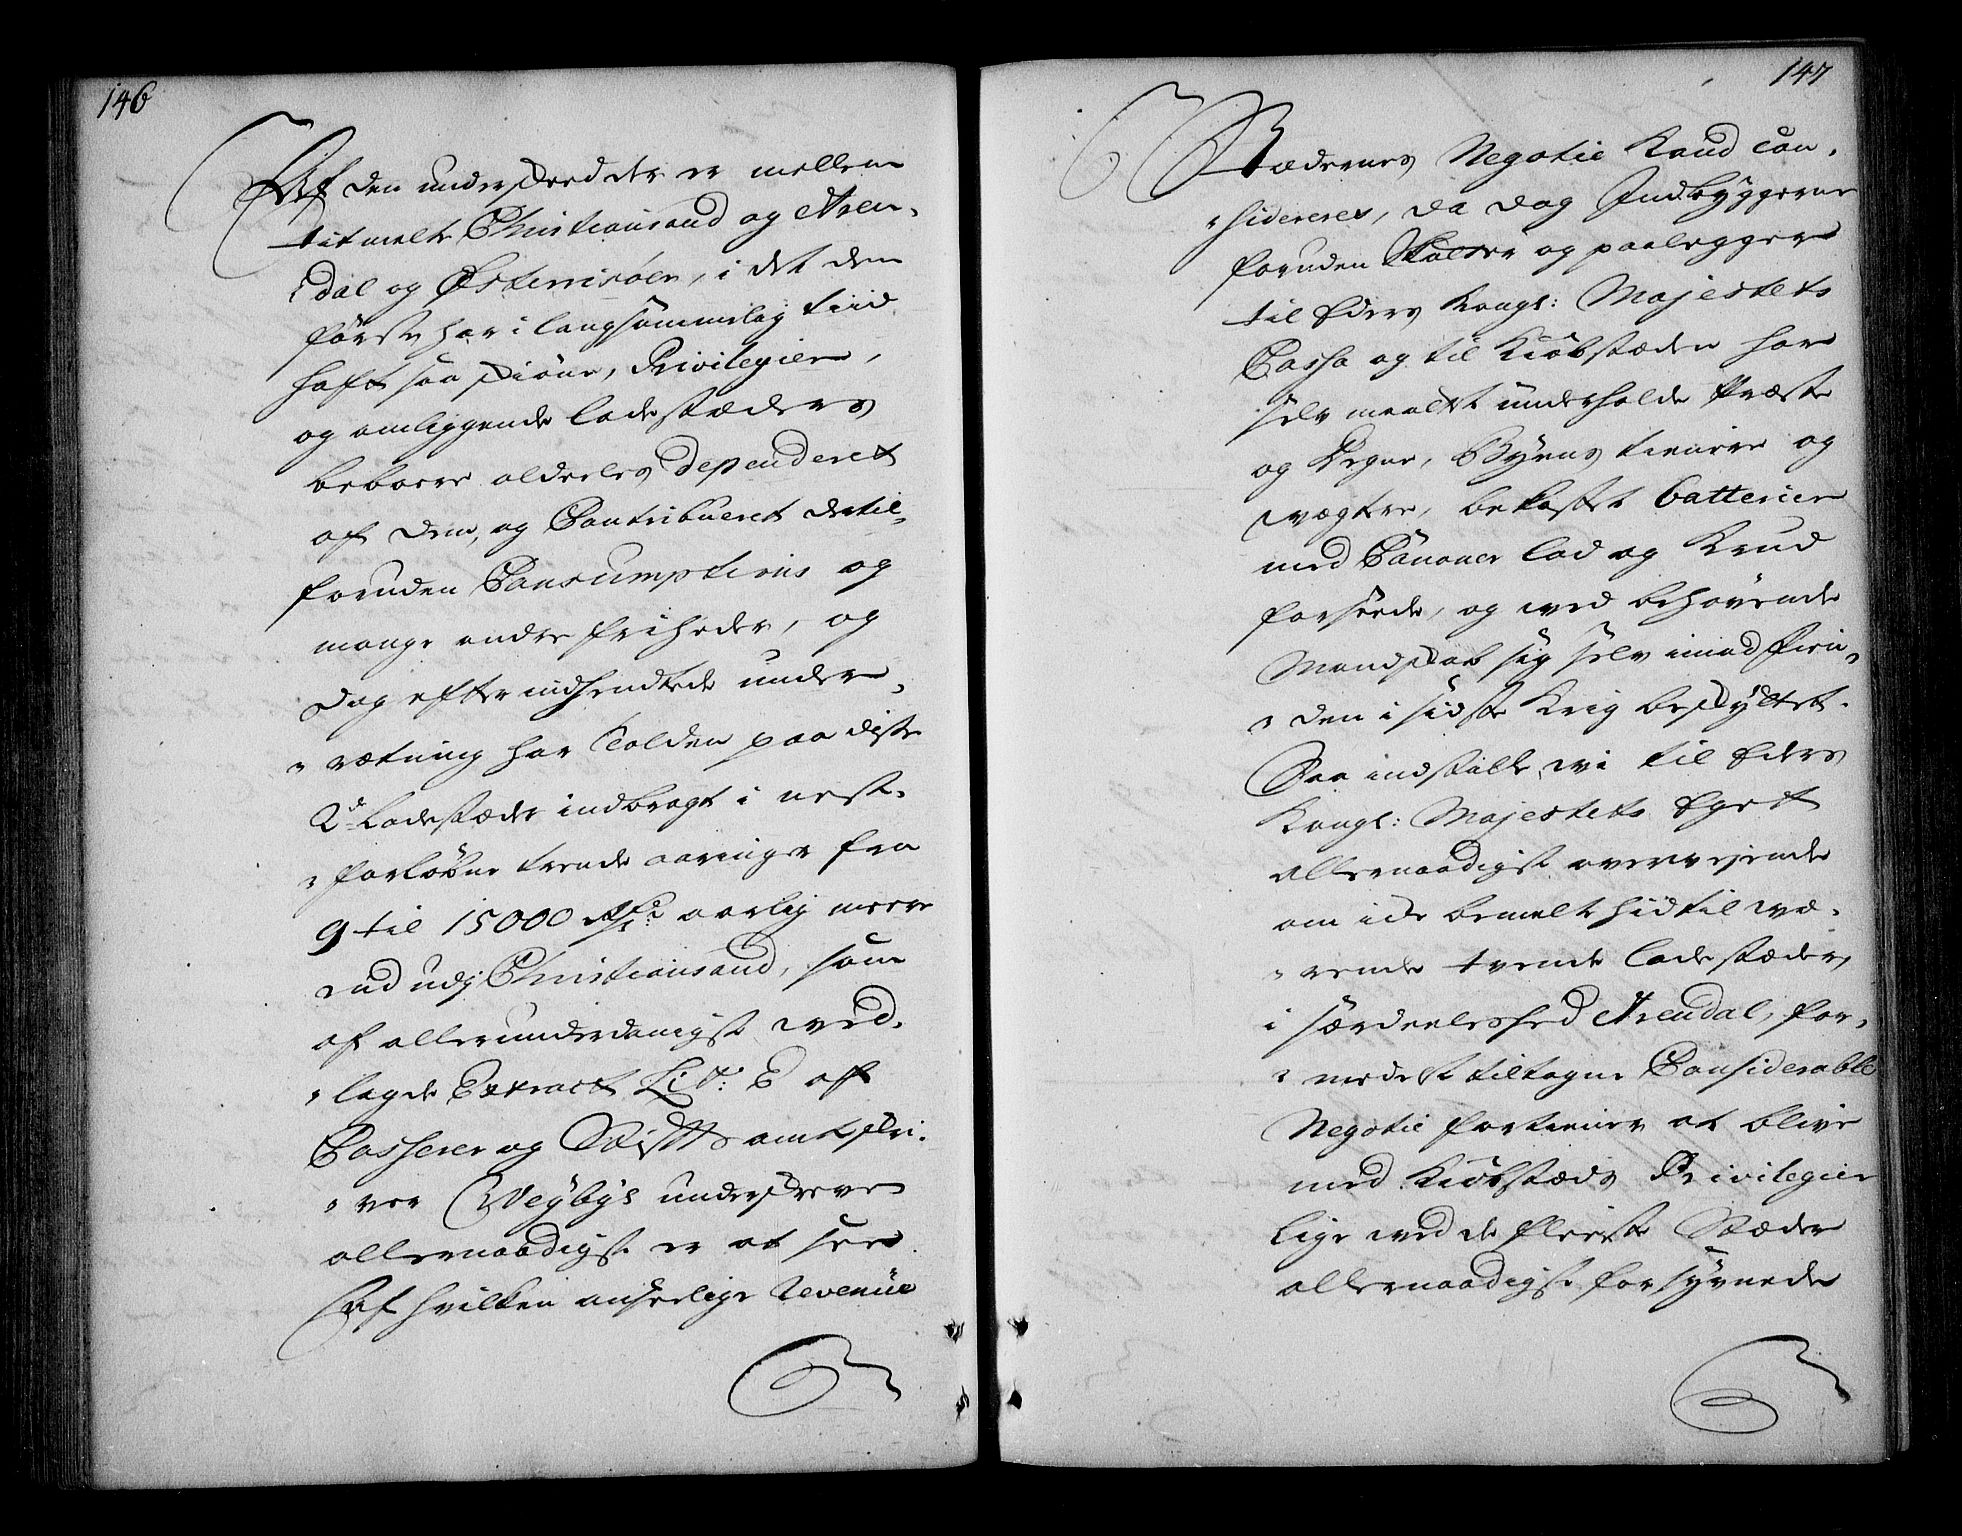 146
Af den underskeed der er mellem
titmelte Christiansand og Aren-
dal og Østerrisöer, i det den
første har i langsommelig tiid
haft saa skiöne, Privilegier,
og omliggende Ladestæders
beboere alderles dependeret
af dem, og Contribueret dertil
foruden Consumptions og
mange andre friheder, og
dog efter indhendtede under-
rætning har Tolden paa diste
2de Ladestæder indbragt i nest-
forløbne trende aaringer fra
9 til 15000 Rdr aarlig meere
end udj Christiansand, som
af allerunderdanigst wed-
lagde Extract Lit: E af
Casserer og Stifts amtskri-
ver Weybys underskreven
allernaadigst er at see.
Af hvilken anseelige Revenüe
147
Stædernes Negotie Kand con-
sidereres, da dog Indbyggerne
foruden Skatter og paalegger
til Eders Kongl: Majestets
Cassa og til Kiöbstæden har
selv maattet underholde Præste
og Degne, Byens tienere og
vægtere, bekostet batterier
med Canoner lod og Krud
forseede, og wed behövende
Mandskab sig selv imod fien-
den i sidste Krig beskyttet.
Saa indstille wi til Eders
Kongl: Majestets Eget
allernaadigst overvejende
om ide bemelte hidtil wæ-
rende tvende Ladestæder,
i særdeeleshed Arendal, for-
medelst tiltagne Considerable
Negotie fortiener at blive
med Kiöbstæds Privilegier
lige wed de fleeste Stæder
allernaadigst forsÿnede